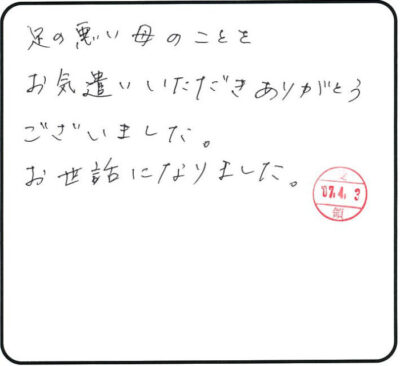 足の悪い母のことを
お気遣いいただきありがとう
ございました。
お世話になりました。
07.4.3
領